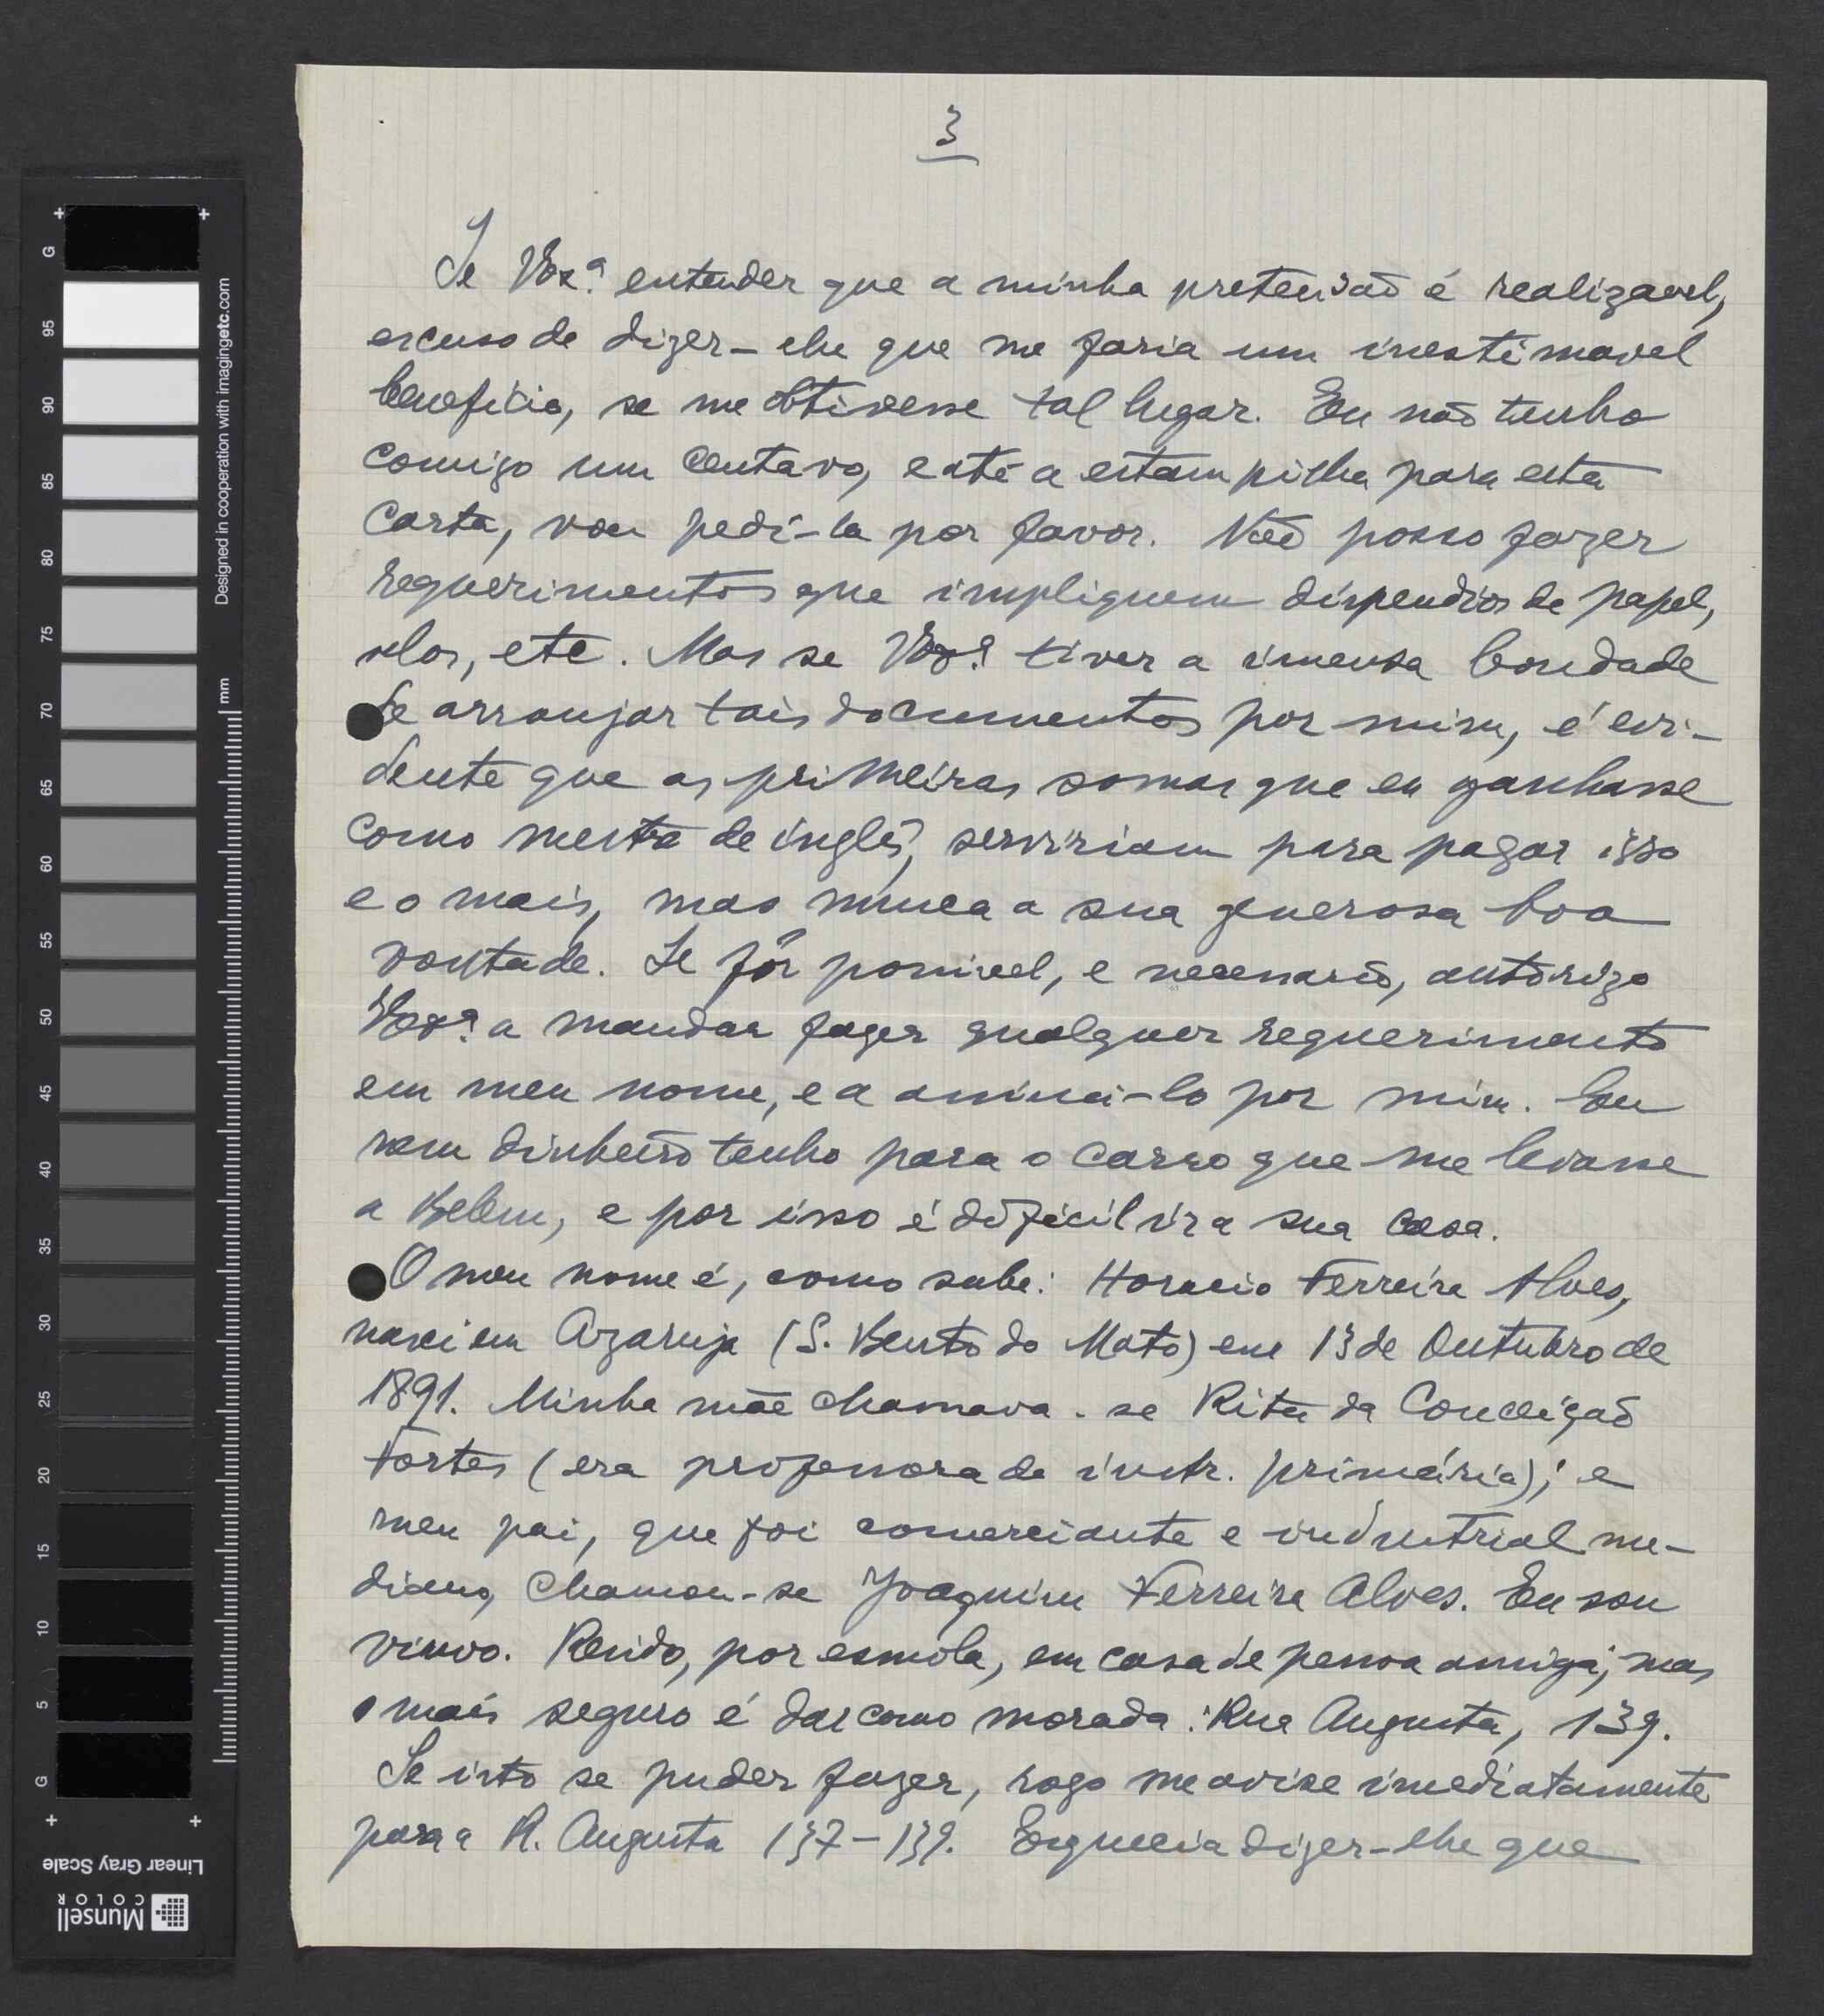 3
Se Vexª. entender que a minha pretensão é realizavel,
escuso de dizer-lhe que me faria um inestimavel
beneficio, se me obtivesse tal lugar. Eu não tenho
comigo um centavo, e até a estampilha para esta
carta, vou pedi-la por favor. Não posso fazer
requerimentos que impliquem dispendios de papel,
selos, etc. Mas se Vexª. tiver a imensa bondade
de arranjar tais documentos por mim, é evi-
dente que as primeiras somas que eu ganhasse
como mestre de inglês, serviriam para pagar isso
e o mais, mas nunca a sua generosa boa
vontade. Se fôr possivel, e necessario, autorizo
Vexª. a mandar fazer qualquer requerimento
em meu nome, e a assiná-lo por mim. Eu
nem dinheiro tenho para o carro que me levasse
a Belem, e por isso é dificil ir a sua casa.
O meu nome é, como sabe: Horacio Ferreira Alves,
nasci em Azaruja (S. Bento do Mato) em 13 de Outubro de
1891. Minha mãe chamava-se Rita da Conceição
Fortes (era professora de instr. primária); e
meu pai, que foi comerciante e industrial me-
diano, chamou-se Joaquim Ferreira Alves. Eu sou
viuvo. Resido, por esmola, em casa de pessoa amiga; mas
o mais seguro é dar como morada: Rua Augusta, 139.
Se isto se puder fazer, rogo me avise imediatamente
para a R. Augusta 137-139. Esquecia dizer-lhe que
Designed in cooperation with imagingetc.com
mm
G
95
90
85
80
75
70
65
60
55
50
45
40
35
30
25
20
15
10
5
G
Linear Gray Scale
Munsell
COLOR